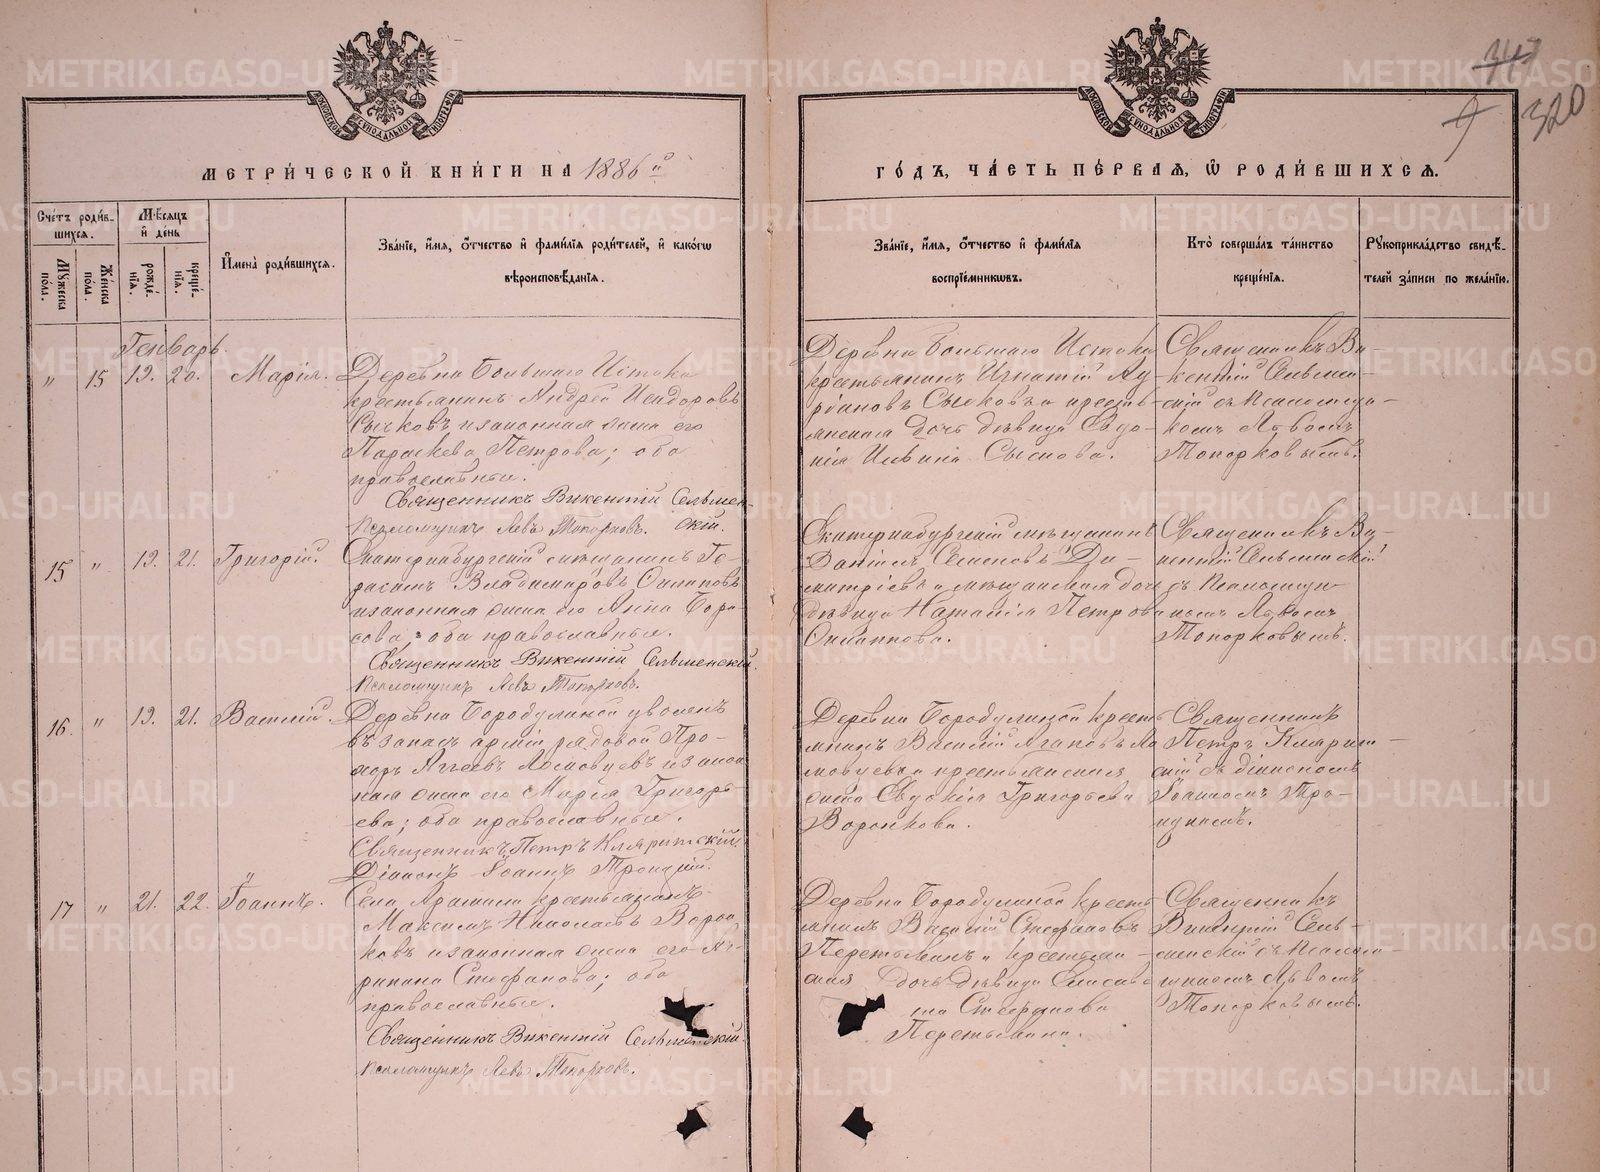 347
9
320
МЕТРИ́ЧЕСКОЙ КНИ́ГИ НА 1886й
ГО́ДЪ, ЧА́СТЬ ПЕ́РВАѦ, Ѡ РОДИ́ВШИХСѦ.
Сче́тъ роди́в-
шихсѧ.
Мꙋ́жеска
по́ла.
Же́нска
по́ла.
Мѣ́сѧцъ
и҆ де́нь
рожде́-
нїѧ.
креще́-
нїѧ.
И҆мена̀ роди́вшихсѧ.
Зва́нїе, и҆́мѧ, о҆́тчество и҆ фами́лїѧ роди́телей, и҆ како́гѡ
вѣроисповѣ́данїѧ.
Зва́нїе, и҆́мѧ, о҆́тчество и҆ фами́лїѧ
воспрїе́мникѡвъ.
Кто̀ соверша́лъ та́инство
креще́нїѧ.
Рꙋкоприкла́дство свидѣ́-
телей за́писи по жела́нїю.
Генварь.
" 15 19. 20. Марія.
Деревни Большаго Истока
крестьянинъ Андрей Исидоровъ
Сычковъ и законная жена его
Параскева Петрова; оба
православные.
Священникъ Викентій Сельмен-
скій.
Псаломщикъ Левъ Топорковъ.
Деревни Большаго Истока
крестьянинъ Игнатій
крестья-
нская дочь дѣвица Евдо-
кія
Священникъ Ви-
кентій Сельмен-
скій съ Псаломщи-
комъ Львомъ
Топорковымъ.
15 " 19. 21. Григорій.
Екатеринбургскій мѣщанинъ Ге-
расимъ Владимировъ
и законная жена его Анна Бори-
сова; оба православные.
Священникъ Викентій Сельменскій
Псаломщикъ Левъ Топорковъ.
Екатеринбургскій мѣщанинъ
Даніилъ Семеновъ Ди-
митріевъ и мѣщанская дочь
дѣвица Наталія Петрова
Священникъ Ви-
кентій Сельменскій
съ Псаломщи-
комъ Львомъ
Топорковымъ.
16. " 19. 21. Василій.
Деревни Бородулиной уволен.
въ запасъ арміи рядовой Про-
хоръ Аггеевъ Ломовцевъ и закон-
ная жена его Марія Григорь-
ева; оба православные.
Священникъ Петръ Кляритскій.
Діаконъ Іоаннъ Троицкій.
Деревни Бородулиной кресть-
янинъ Василій Агаповъ Ло
мовцевъ и крестьянская
жена Евдокія Григорьева
Воронкова.
Священникъ
Петръ Кларит-
скій съ діакономъ
Іоанномъ Тро-
ицкимъ.
17 " 21. 22. Іоаннъ.
Села Арамили крестьянинъ
Максимъ Николаевъ Ворон
ковъ и законная жена его Аг-
рипина Стефанова; оба
православные.
Священникъ Викентій Сельменскій.
Псаломщикъ Левъ Топорковъ.
Деревни Бородулиной кресть
янинъ Василій Стефановъ
Перетыкинъ и крестьян-
ская дочь дѣвица Елисаве
та Стефанова
Перетыкина.
Священникъ
Викентій Сель-
менскій съ Псалом-
щикомъ Львомъ
Топорковымъ.
METRIKI.GASO-URAL.RU